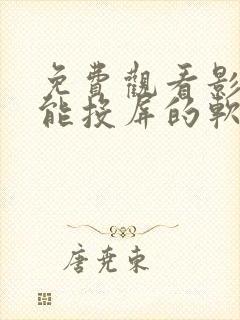 免費觀看影
能投屏的軟
唐尭東